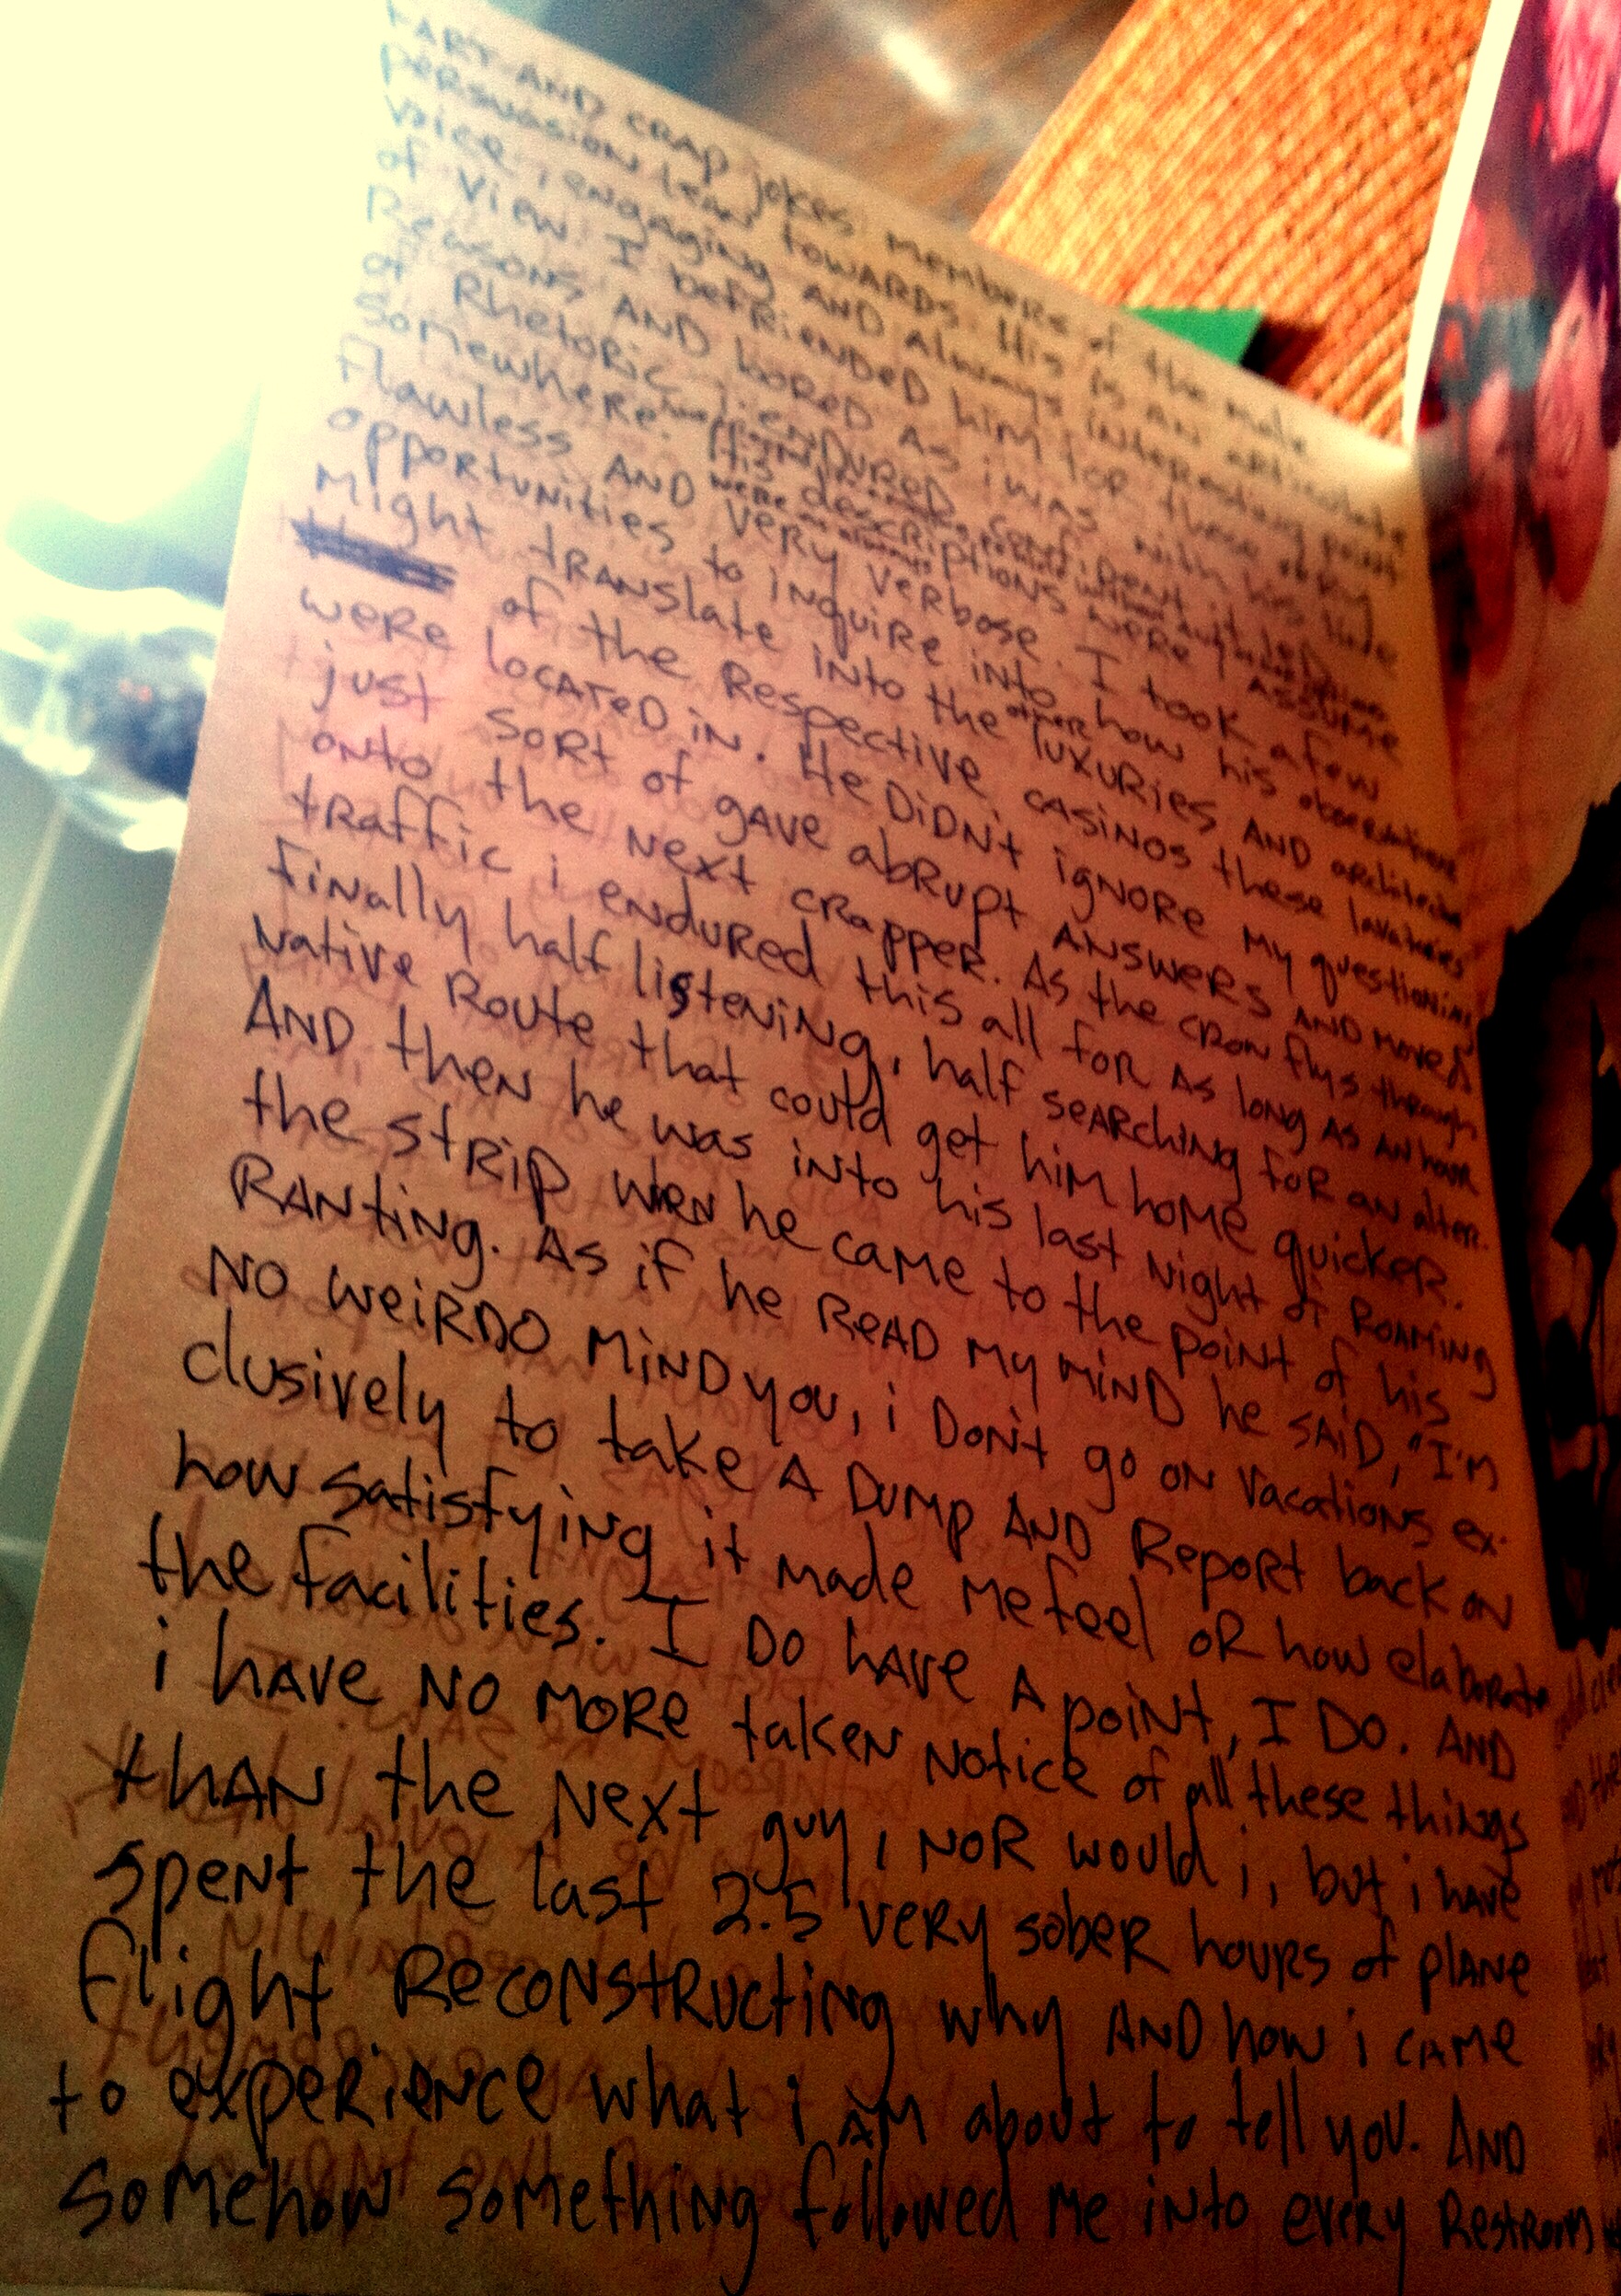 FART AND CRAP jokes. Members of the male
persuasion lean towards. His is an articulate
voice, engaging AND Always interesting point
of view. I befriended him for these
Reasons AND bored AS i was with his
of Rhetoric, i ENDURED, confident it led
somewhere. His descriptions were, I assume
flawless AND very verbose. I took a few
opportunities to inquire into how his observations
Might translate into the other luxuries AND architecture
of the Respective casinos these lavatories
were located in. He DiDN't ignore my questioning
just sort of gave abrupt ANSWERS AND moved
onto the next crapper. As the crow flys through
traffic i endured this all for as long as an hour
finally half listening, half searching for an alter-
native Route that could get him home quicker.
AND then he was into his last night of Roaming
the strip when he came to the point of his
RANting. As if he READ my mIND he SAiD, "I'm
NO weiRDO MiND you, i Don't go on vacations ex-
clusively to take A Dump AND Report back on
how satisfying it made me feel or how elaborate
the facilities. I Do have A point, I Do. AND
i have NO more taken Notice of all these things
thAN the Next guy, NOR would i, but i have
spent the last 2.5 very sober hours of plane
flight Reconstructing why AND how i came
to experience what i AM about to tell you. AND
Somehow something followed me into every Restroom